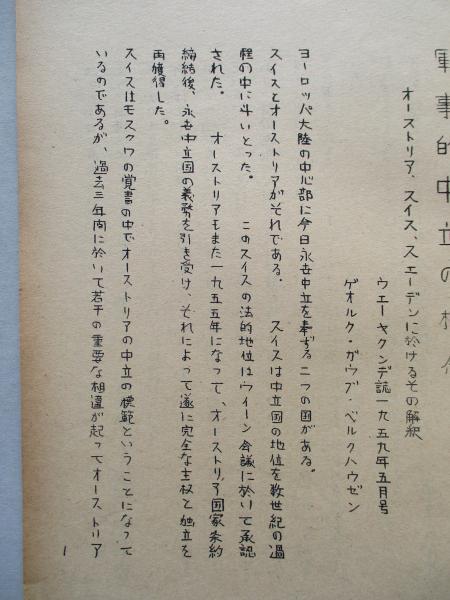 軍事的中立の
オーストリア、スイス、スエーデンに於けるその解釈
ウエーヤクンデ誌一九五九年五月号
ゲオルク・ガウプ・ベルクハウゼン
ヨーロッパ大陸の中心部に今日永世中立を奉ずる二つの国がある。
スイスとオーストリアがそれである。 スイスは中立国の地位を数世紀の過
程の中に斗いとった。 このスイスの法的地位はウイーン会議に於いて承認
された。 オーストリアもまた一九五五年になって、オーストリア国家条約
締結後、永世中立国の義務を引き受け、それによって遂に完全な主权と独立を
再獲得した。
スイスはモスクワの覚書の中でオーストリアの中立の模範ということになって
いるのであるが、過去三年間に於いて若干の重要な相違が起ってオーストリア
1